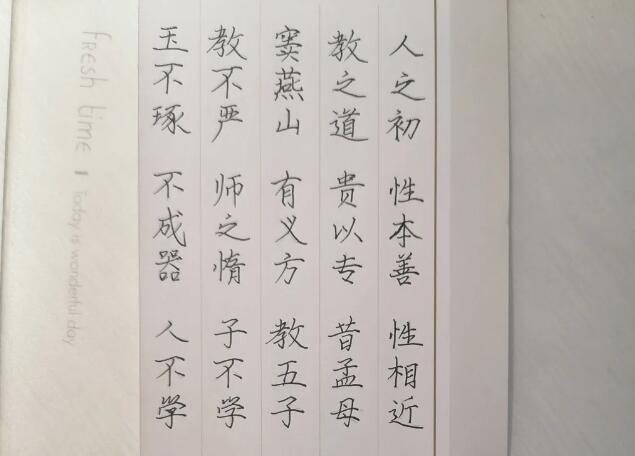 人之初 性本善 性相近
教之道 贵以专 昔孟母
窦燕山 有义方 教五子
教不严 师之惰 子不学
玉不琢 不成器 人不学
fresh time
Today is wonderful day